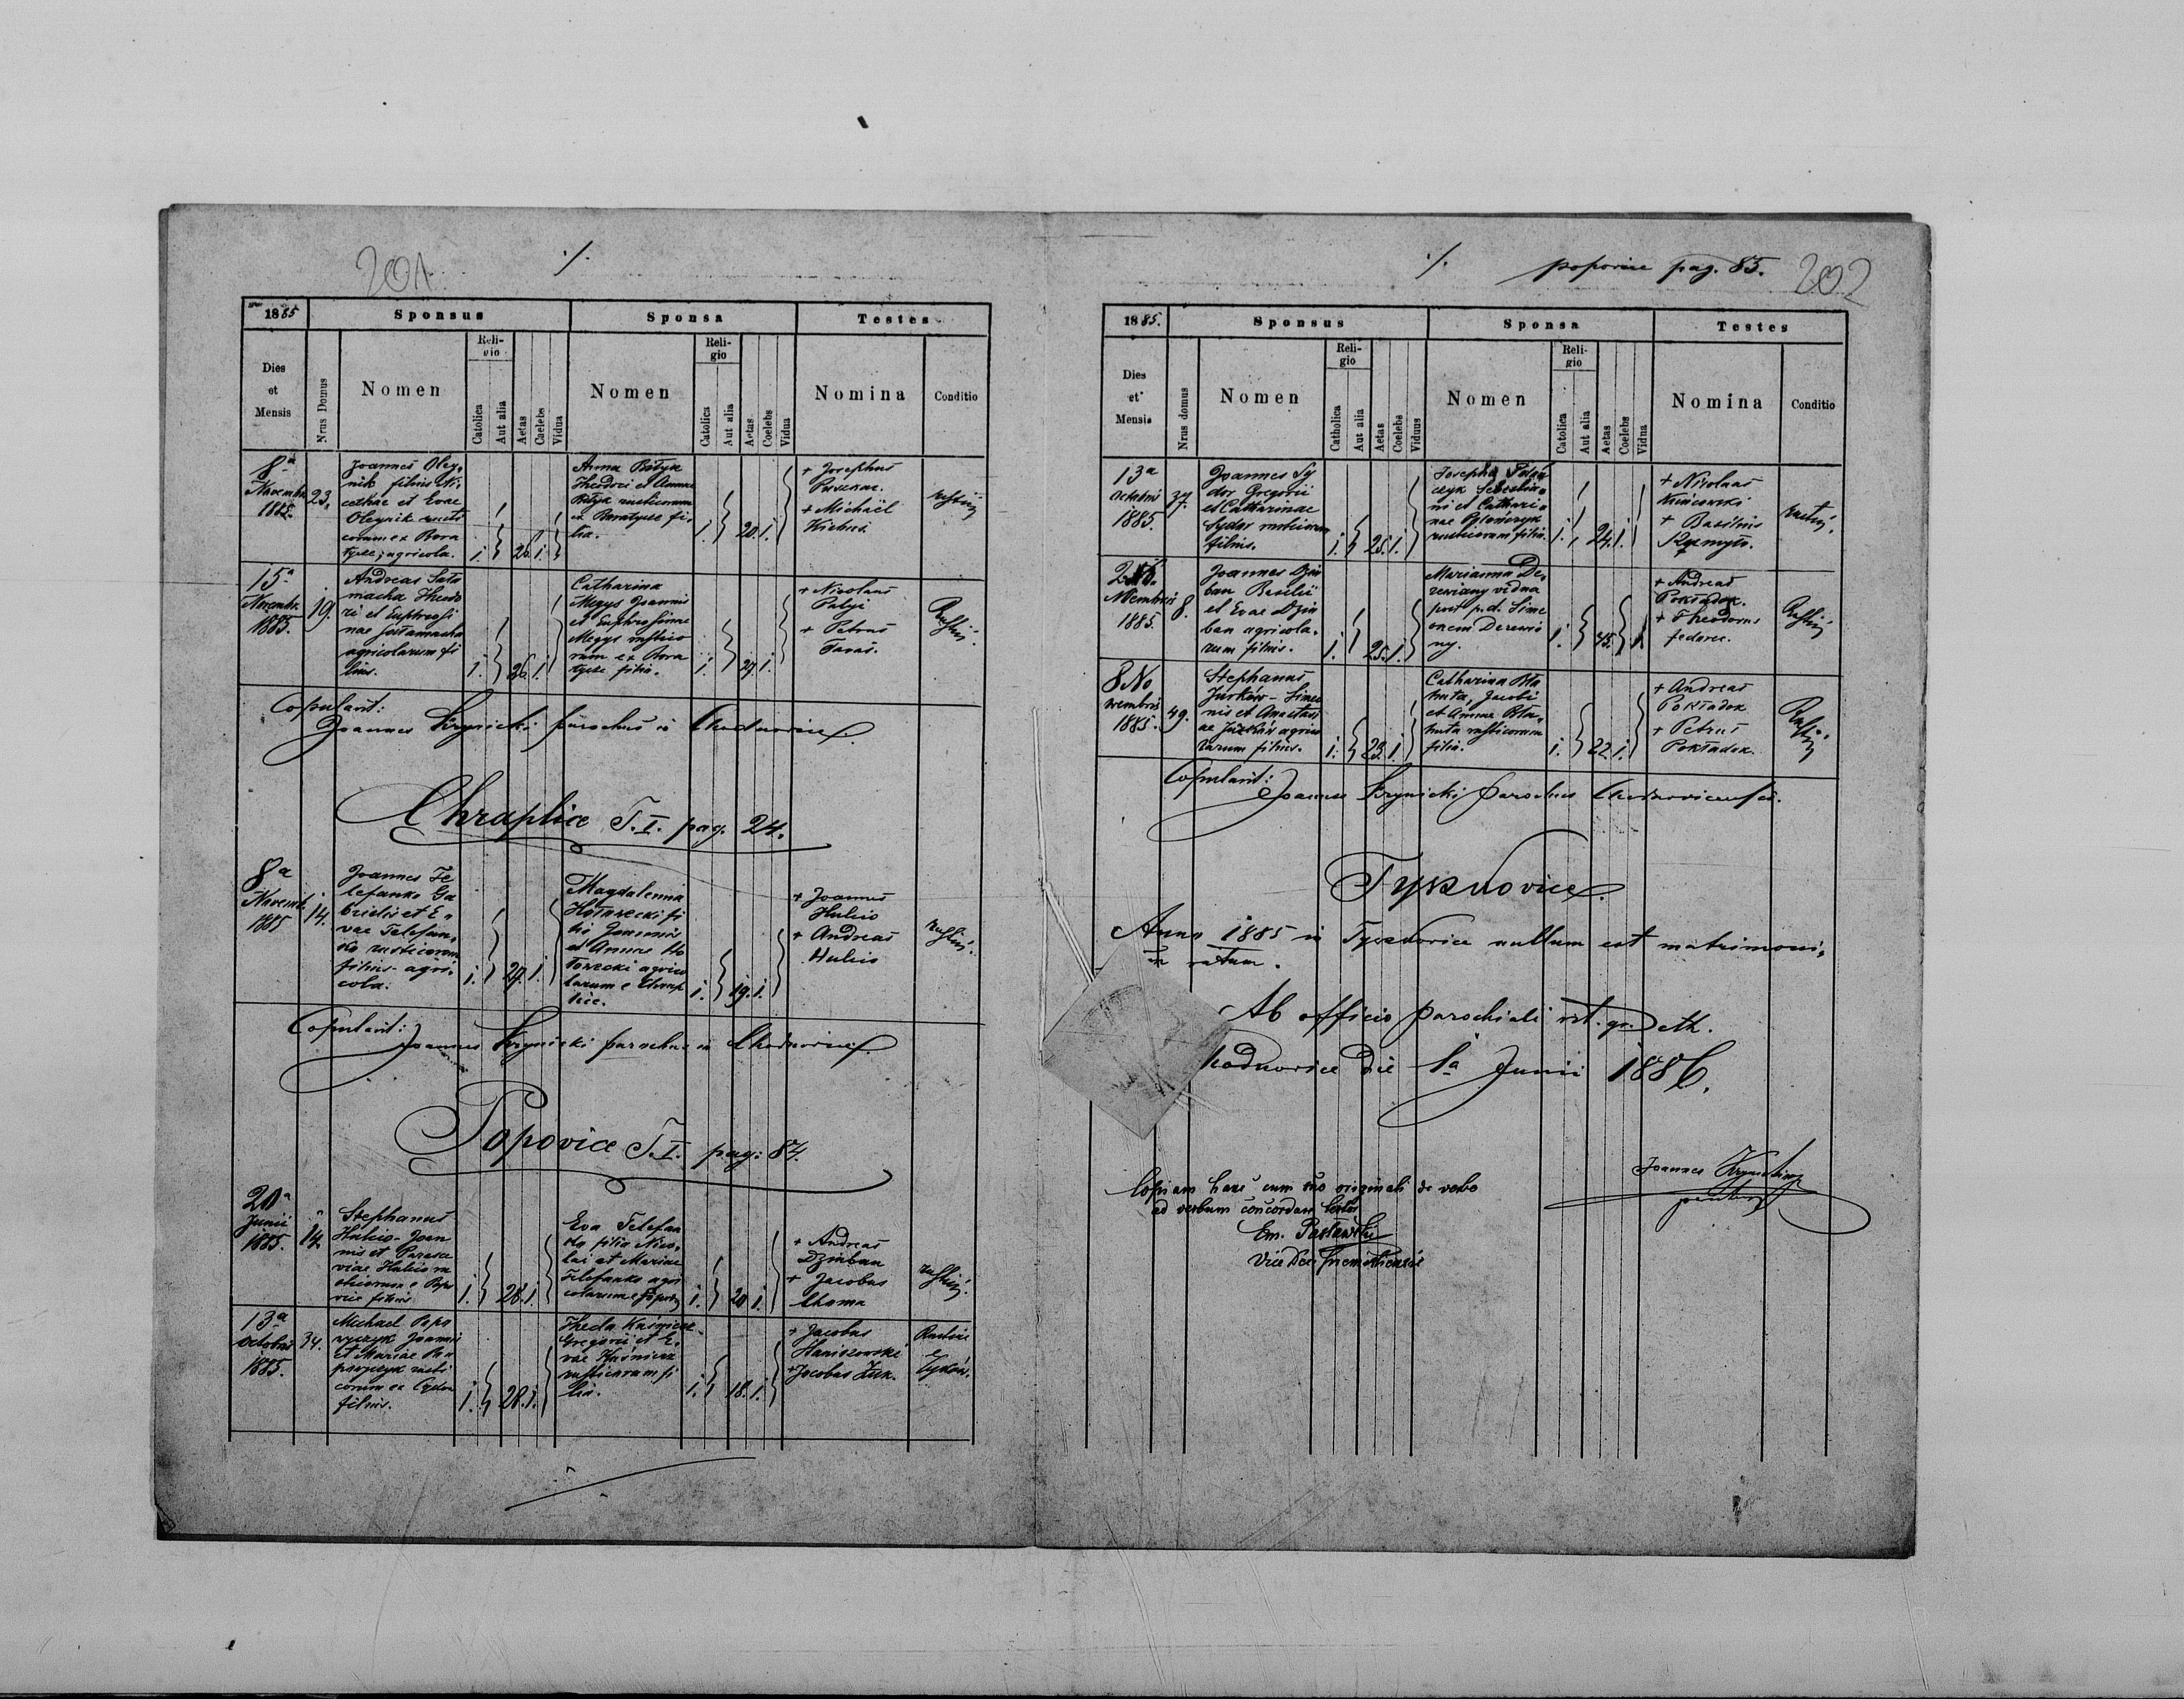 201
./.
1885
Sponsus
Sponsa
Testes
Dies
et
Mensis
Nrus Domus
Nomen
Reli-
gio
Catolica
Aut alia
Aetas
Caelebs
Vidua
Nomen
Reli-
gio
Catolica
Aut alia
Aetas
Coelebs
Vidua
Nomina
Conditio
8a
Novembr.
1885.
23.
Joannes Oley,
nik filius Ni,
cethae et Evae
Oleynik rusti
corum ex Bora
tycze, agricola.
1.
26.
1.
Anna
Theodori et Annae
rusticorum
ex Boratycze fi,
lia.
1.
20.
1.
+ Josephus
+ Michaël
rustici
15a
Novembr.
1885.
19.
Andreas Sata
macha Theodo
ri et Euphrosi
nae
agricolarum fi
lius.
1.
26.
1.
Catharina
Megys Joannis
et Euphrosinae
Megys rustico
rum ex Bora
tycze filia.
1.
1.
+ Nicolaus
+ Petrus
Taras.
Rustici.
Copulavit:
Joannes Krynicki parochus in Chodnovice.
Chraplice T.I. pag. 24.
8a
Novemb.
1885
14.
Joannes Te
lefanko Ga
brielis et E,
vae Telefan,
ko rusticorum
filius - agri,
cola.
1.
1.
Magdalenna
fi
lia Joannis
et Annae
agrico
larum e Chrap
lice.
1.
19.
1.
+ Joannes
Hulcio
+ Andreas
Hulcio
rustici.
Copulavit:
Joannes Krynicki parochus in Chodnovice.
Popovice T.I. pag: 84.
20a
Junii
1885.
14
Stephanus
Hulcio - Joan
nis et Parasce
viae Hulcio ru
sticorum e Popo
vice filius.
1.
28.
1.
Eva Telefan
ko filia Nico,
lai et Mariae
Telefanko agri
colarum e Popovice
1.
20
1.
+ Andreas
Dziuban
+ Jacobus
Choma
rustici.
13a
Octobris
1885.
34.
Michael Popo
wyczyk Joannis
et Mariae Po
powyczyk rusti
corum ex
filius.
1.
28.
1.
Thecla Kuśnierz
Gregorii et E,
vae Kuśnierz
rusticorum fi
lia.
1.
18.
1.
+ Jacobus
Staniszewski
+ Jacobus Żuk.
Rustici
e
./.
popovice pag. 85.
202
1885.
Sponsus
Sponsa
Testes
Dies
et
Mensis
Nrus domus
Nomen
Reli-
gio
Catholica
Aut alia
Aetas
Coelebs
Viduus
Nomen
Reli-
gio
Catolica
Aut alia
Aetas
Coelebs
Vidua
Nomina
Conditio
13a
Octobris
1885.
37.
Joannes Sy
dor Gregorii
et Catharinae
Sydor rusticorum
filius.
1.
25.
1.
Josepha
czyk Sebastia,
ni et Cathari,
nae
rusticorum filia.
1.
24.
1.
+ Nicolaus
+ Basilius
rustici.
1885
8.
Joannes Dziu
ban Basilii
et Evae Dziu
ban agricola,
rum filius.
1.
25.
1.
Marianna De,
rewiany vidua
post p. d. Sime
onem Derewia
ny.
1.
45.
1.
+ Andreas
Pokładok.
+ Theodorus
Fedorec.
Rustici.
8 No
vembris
1885.
49.
Stephanus
Jurków - Simeo
nis et Anastasi
ae Jurków agrico
larum filius.
1.
23.
1.
Catharina
Jacobi
et Annae
rusticorum
filia.
1.
22.
1.
+ Andreas
Pokładok
+ Petrus
Pokładok.
Rustici.
Copulavit:
Joannes Krynicki parochus Chodnoviensis.
Tyszkovice.
Anno 1885 in Tyszkovice nullum est matrimoni,
um ratum.
Ab officio parochiali rit. gr. cath.
hodnovice die 1a Junii 1886.
Joannes Krynicki
parochus
Copiam hanc cum suo originali de verbo
ad verbum concordare testor
Em. Pasławski
Vice Dec.